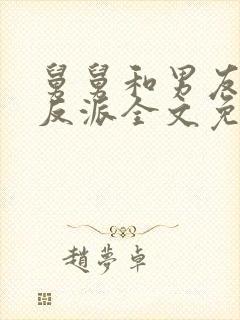 舅舅和男友
反派全文免
趙夢卓